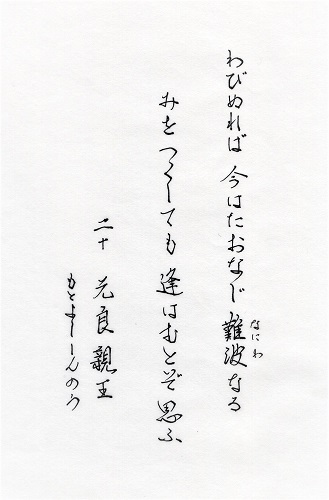 わびぬれば 今はたおなじ 難波なる
なにわ
みをつくしても 逢はむとぞ思ふ
二十 元良親王
もとよししんのう